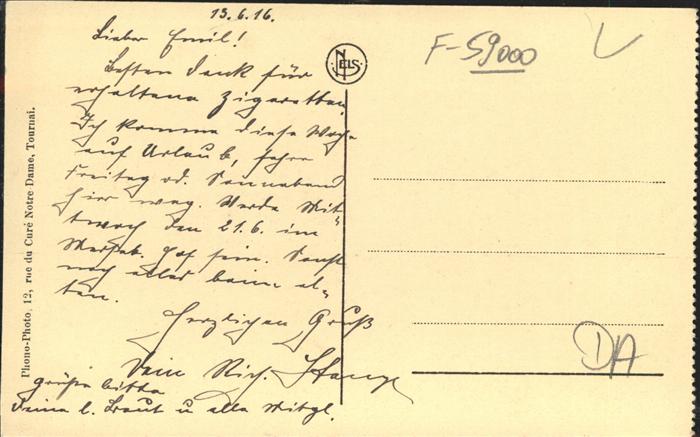 13.6.16.
Lieber Emil!
Besten Dank für
erhaltene Zigaretten.
Ich komme diese Woche
auf Urlaub, fahre
Freitag od. Sonnabend
hier weg. Werde Mit-
twoch den 21.6. im
Merseb. Hof sein. Sonst
noch alles beim al-
ten.
Herzlichen Gruß
Dein Rich.
grüße bitte
Deine l. Braut u alle Mitgl.
NELS
F-59000
DA
Phono-Photo, 12, rue du Curé Notre Dame, Tournai.